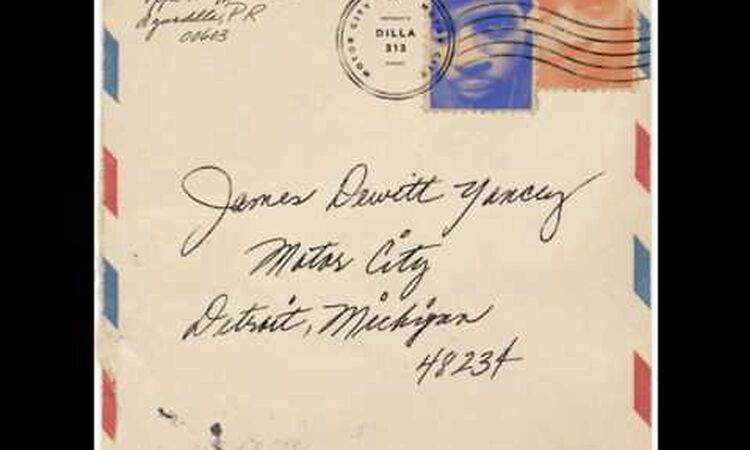 Aguadilla, PR
00603
MOTOR CITY
DILLA
313
MOTOR CITY
James Dewitt Yancey
Motor City
Detroit, Michigan
48234